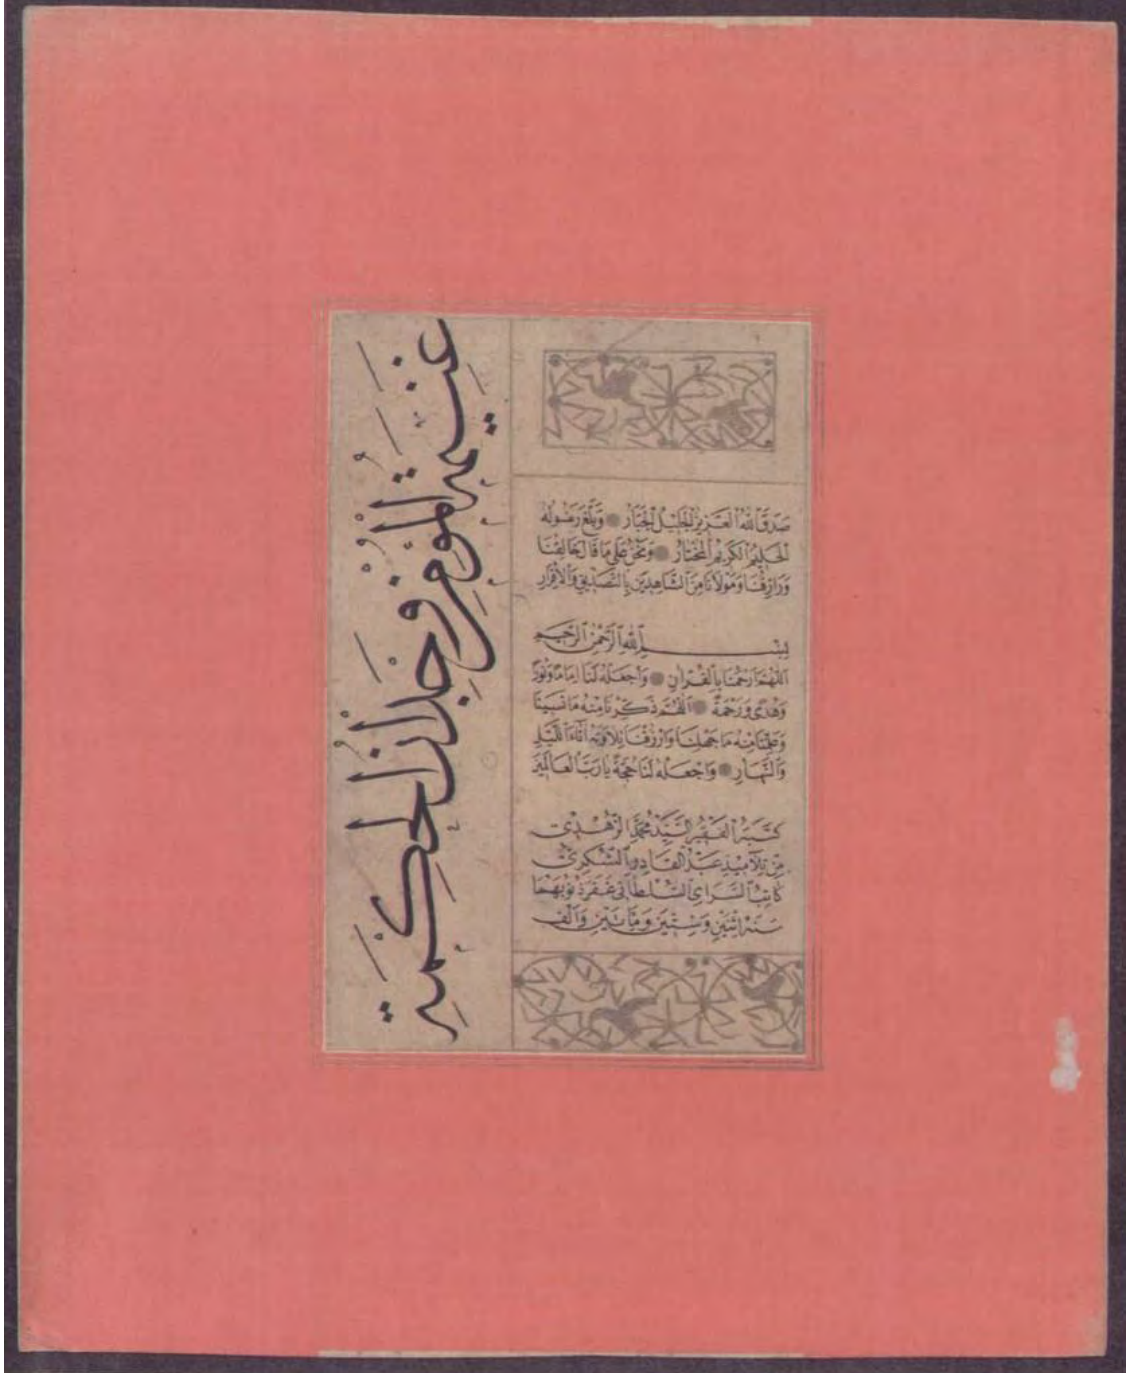 غنيمة المؤمن وجدان الحكمة
صَدَقَ اللهُ الْعَزِيزُ الْجَلِيلُ الْجَبَّارُ وَبَلَّغَ رَسُولُهُ
الْحَلِيمُ الْكَرِيمُ الْمُخْتَارُ وَنَحْنُ عَلَى مَا قَالَ خَالِقُنَا
وَرَازِقُنَا وَمَوْلَانَا مِنَ الشَّاهِدِينَ بِالتَّصْدِيقِ وَالْإِقْرَارِ
بِسْمِ اللهِ الرَّحْمٰنِ الرَّحِيمِ
اَللّٰهُمَّ ارْحَمْنَا بِالْقُرْاٰنِ وَاجْعَلْهُ لَنَا اِمَامًا وَنُورًا
وَهُدًى وَرَحْمَةً اَللّٰهُمَّ ذَكِّرْنَا مِنْهُ مَا نَسِينَا
وَعَلِّمْنَا مِنْهُ مَا جَهِلْنَا وَارْزُقْنَا تِلَاوَتَهُ اٰنَاءَ اللَّيْلِ
وَالنَّهَارِ وَاجْعَلْهُ لَنَا حُجَّةً يَا رَبَّ الْعَالَمِينَ
كَتَبَهُ الْفَقِيرُ السَّيِّدُ مُحَمَّدُ الزُّهْدِى
مِنْ تَلَامِيذِ عَبْدِ الْقَادِرِ الشُّكْرِىِّ
كَاتِبُ السَّرَاىِ السُّلْطَانِى غَفَرَ ذُنُوبَهُمَا
سَنَةَ اثْنَيْنِ وَسِتِّينَ وَمِائَتَيْنِ وَاَلْفٍ